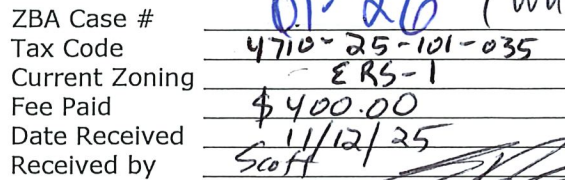 ZBA Case # 01-26
Tax Code 4710-25-101-035
Current Zoning ERS-1
Fee Paid $400.00
Date Received 11/12/25
Received by Scott